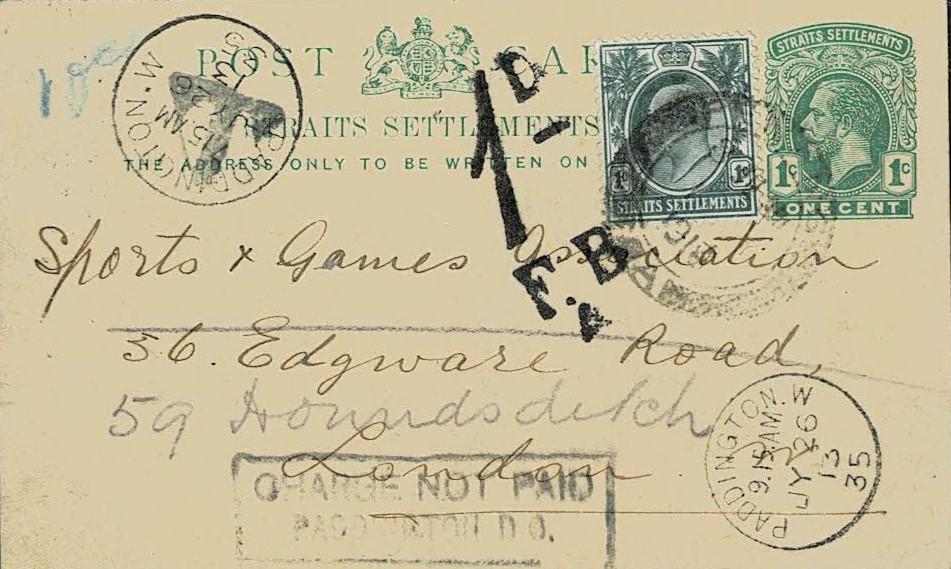 POST CAR
STRAITS SETTLEMENTS
THE ADDRESS ONLY TO BE WRITTEN ON
STRAITS SETTLEMENTS
1c 1c
ONE CENT
1c 1c
STRAITS SETTLEMENTS
PADDINGTON. W
9.15 AM
JY 26
13
35
1D
F.B
Sports & Games Association
36. Edgware Road,
59 Houndsditch
London
CHARGE NOT PAID
PADDINGTON D.O.
PADDINGTON. W
9.15 AM
JY 26
13
35